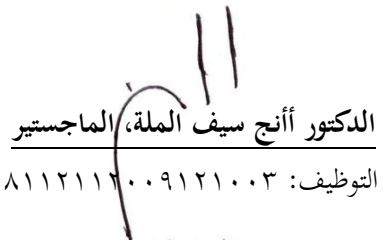 الدكتور أأنج سيف الملة، الماجستير
التوظيف: ٨١١٢١١٢٠٠٩١٢١٠٠٣